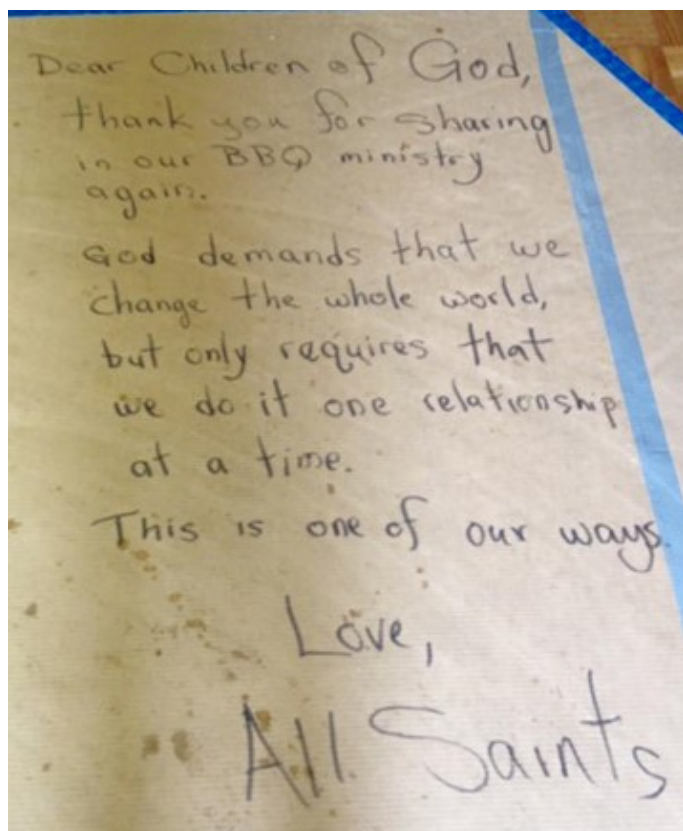 Dear Children of God,
thank you for sharing
in our BBQ ministry
again.
God demands that we
change the whole world,
but only requires that
we do it one relationship
at a time.
This is one of our ways.
Love,
All Saints